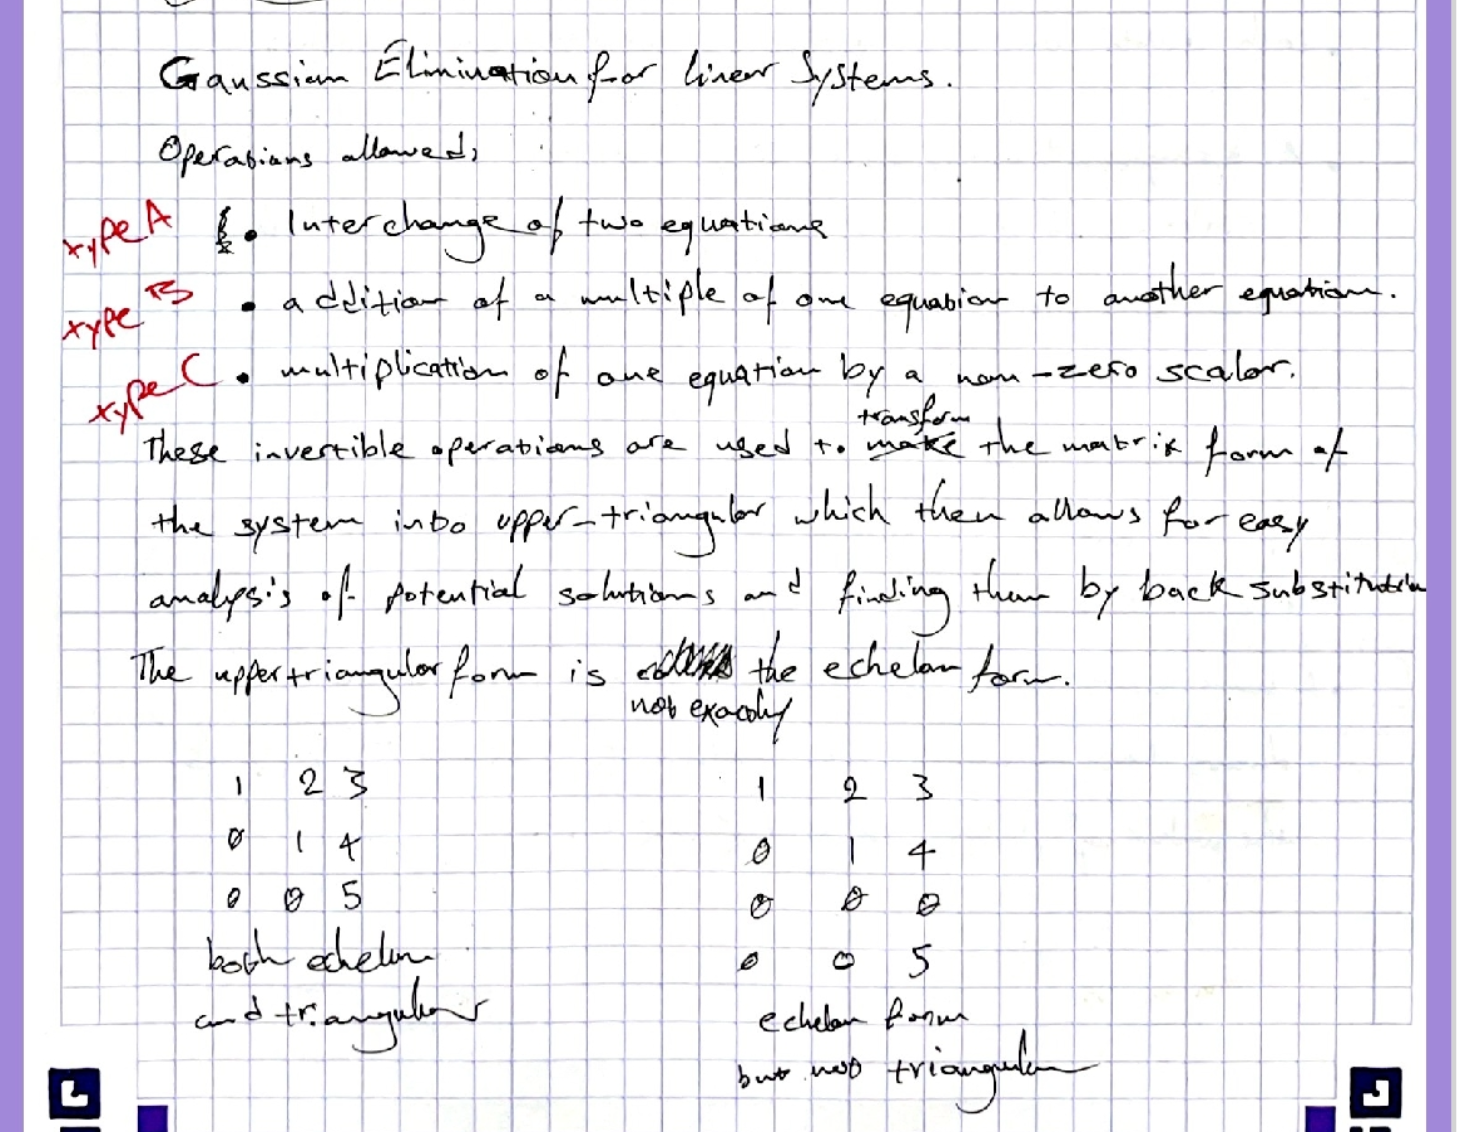 Gaussian Elimination for linear Systems.
Operations allowed;
Type A • Interchange of two equations
Type B • addition of a multiple of one equation to another equation.
Type C • multiplication of one equation by a non-zero scalar.
transform
These invertible operations are used to make the matrix form of
the system into upper-triangular which then allows for easy
analysis of potential solutions and finding them by back substitution
The upper triangular form is the echelon form.
not exactly
1 2 3 1 2 3
0 1 4 0 1 4
0 0 5 0 0 0
both echelon 0 0 5
and triangular echelon form
but not triangular